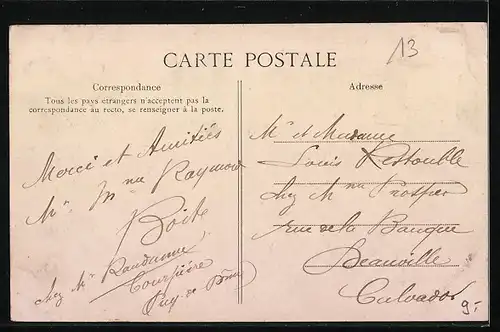 13
CARTE POSTALE
Correspondance
Tous les pays étrangers n'acceptent pas la
correspondance au recto, se renseigner à la poste.
Merci et Amitiés
Mr Mme Raymond
Boîte
chez Mr
Puy-de-Dôme
Adresse
Mr et Madame
Louis
chez Mme Prosper
rue de la Banque
Deauville
Calvados
9.-